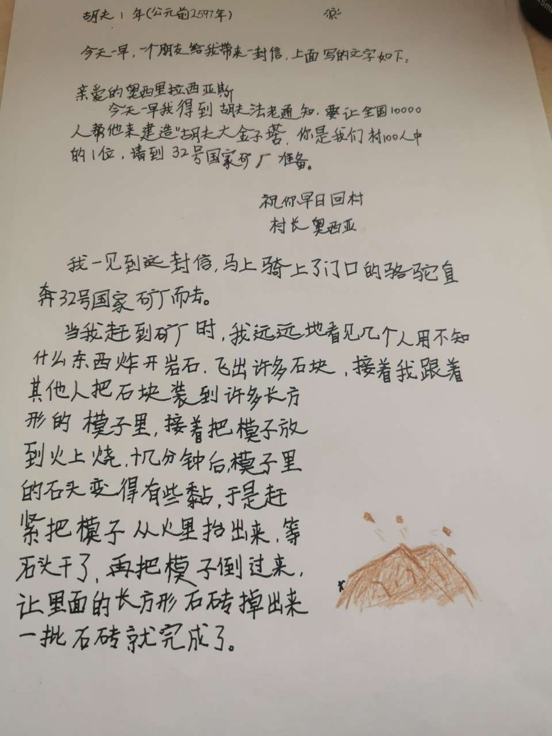 胡夫1年(公元前2597年)
今天一早,一个朋友给我带来一封信,上面写的文字如下。
亲爱的奥西里拉西亚斯
今天一早我得到胡夫法老通知,要让全国10000
人帮他来建造“胡夫大金子塔,你是我们村100人中
的1位,请到32号国家矿厂准备。
祝你早日回村
村长奥西亚
我一见到这封信,马上骑上了门口的骆驼直
奔32号国家矿厂而去。
当我赶到矿厂时,我远远地看见几个人用不知
什么东西炸开岩石,飞出许多石块,接着我跟着
其他人把石块装到许多长方
形的模子里,接着把模子放
到火上烧,十几分钟后,模子里
的石头变得有些黏,于是赶
紧把模子从火里抬出来,等
石头干了,再把模子倒过来,
让里面的长方形石砖掉出来
一批石砖就完成了。